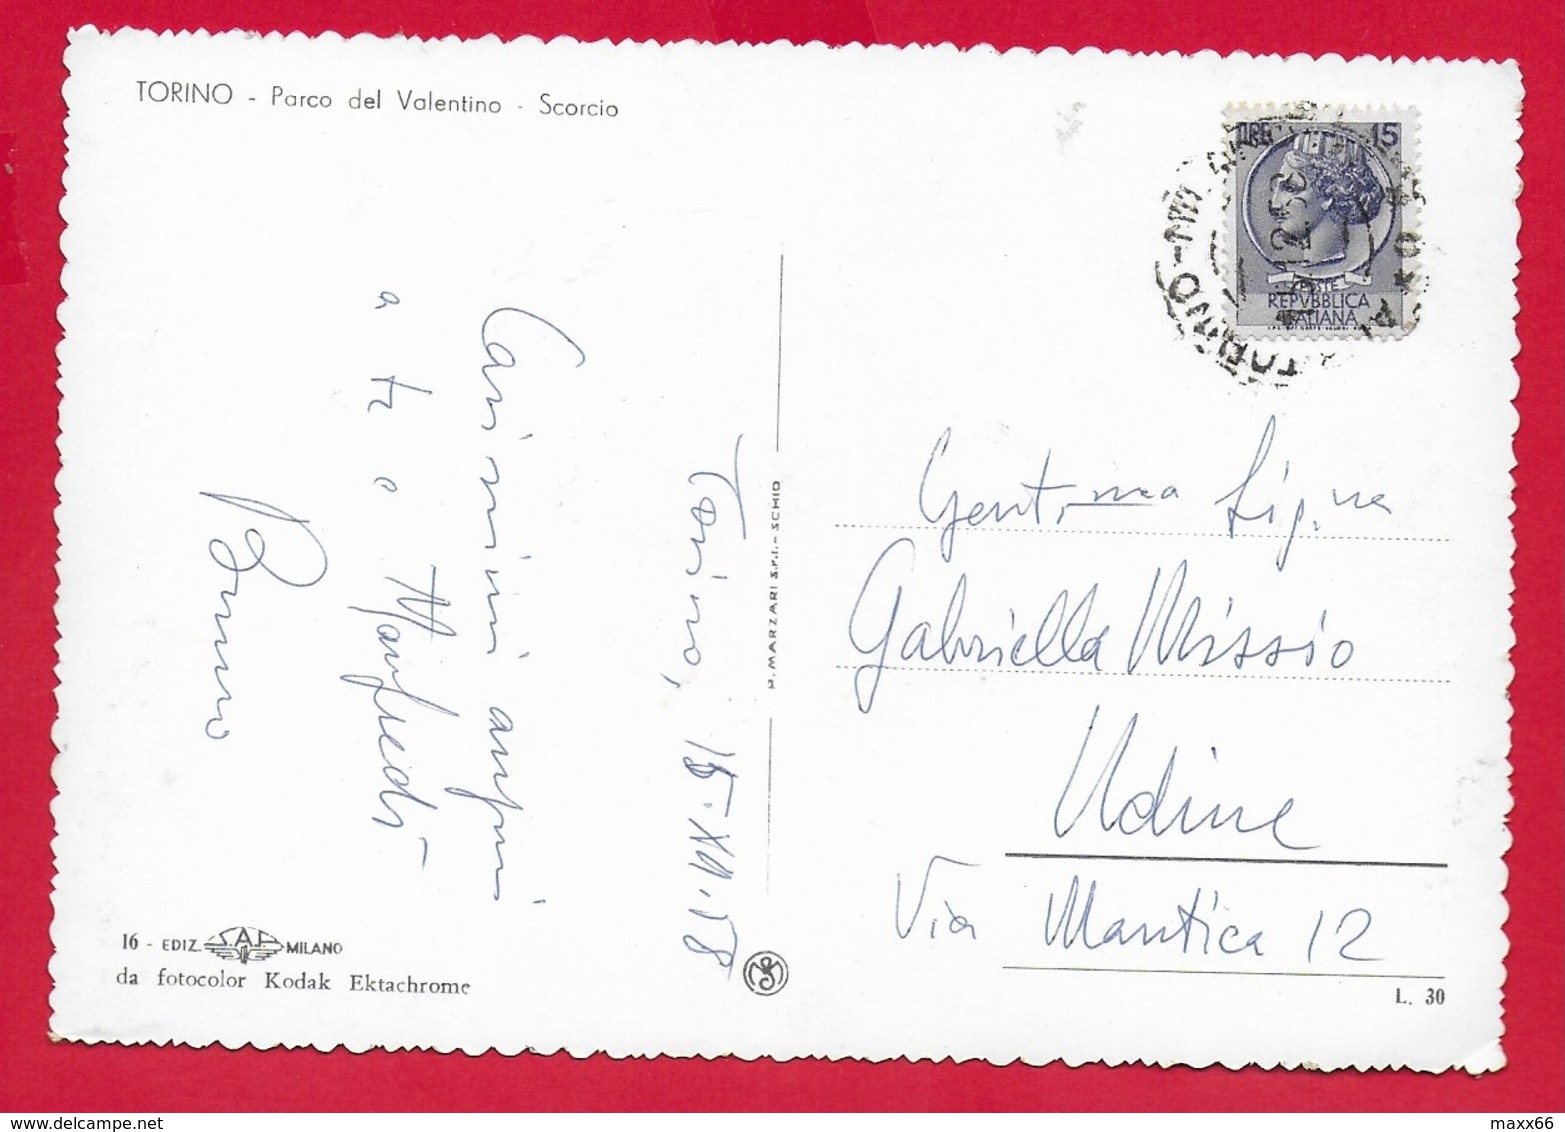 TORINO - Parco del Valentino - Scorcio
LIRE 15
POSTE
REPVBBLICA
ITALIANA
TORINO
12.58
Torino, 15.XII.58
Carissimi auguri
a te e Manfredi -
Bruno
P. MARZARI S.r.l. - SCHIO
Gent.ma Sig.na
Gabriella Missio
Udine
Via Mantica 12
16 - EDIZ. S.A.F. MILANO
da fotocolor Kodak Ektachrome
L. 30
maxx66